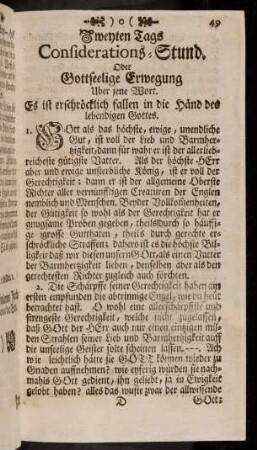 )o( 49
Zweyten Tags
Considerations-Stund.
Oder
Gottseelige Erwegung
Uber jene Wort.
Es ist erschröcklich fallen in die Händ des
lebendigen Gottes.
1. GOtt als das höchste, ewige, unendliche
Gut, ist voll der Lieb und Barmher-
tzigkeit, dann für wahr er ist der allerlieb-
reicheste gütigste Vatter. Als der höchste HErr
aber und ewige unsterbliche König, ist er voll der
Gerechtigkeit: dann er ist der allgemeine Oberste
Richter aller vernünfftigen Creaturen der Englen
nemblich und Menschen. Beyder Vollkommenheiten,
der Gütigkeit so wohl als der Gerechtigkeit hat er
gnugsame Proben gegeben, theils durch so häuffi-
ge grosse Gutthaten, theils durch gerechte er-
schröckliche Straffen: dahero ist es die höchste Bil-
ligkeit daß wir diesen unsern GOtt, als einen Vatter
der Barmhertzigkeit lieben, denselben aber als den
gerechtesten Richter zugleich auch förchten.
2. Die Schärpffe seiner Gerechtigkeit haben am
ersten empfunden die abtrinnige Engel, wie du heut
betrachtet hast. O wohl eine allerschärpffiste und
strengeste Gerechtigkeit, welche nicht zugelassen,
daß GOtt der HErr auch nur einen eintzigen mil-
den Strahlen seiner Lieb und Barmhertzigkeit auff
die unseelige Geister solte scheinen lassen. --- Ach
wie leichtlich hätte sie GOTT können wieder zu
Gnaden auffnehmen? wie eyferig wurden sie nach-
mahls GOtt gedient, ihn geliebt, ja in Ewigkeit
gelobt haben? alles das wuste zwar der allwissende
D GOtt: